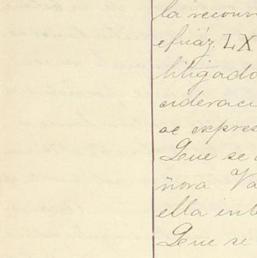 la recon
efiáz LX
litigado
sideraci
se expres
Que se
ñora Va
ella int
Que se